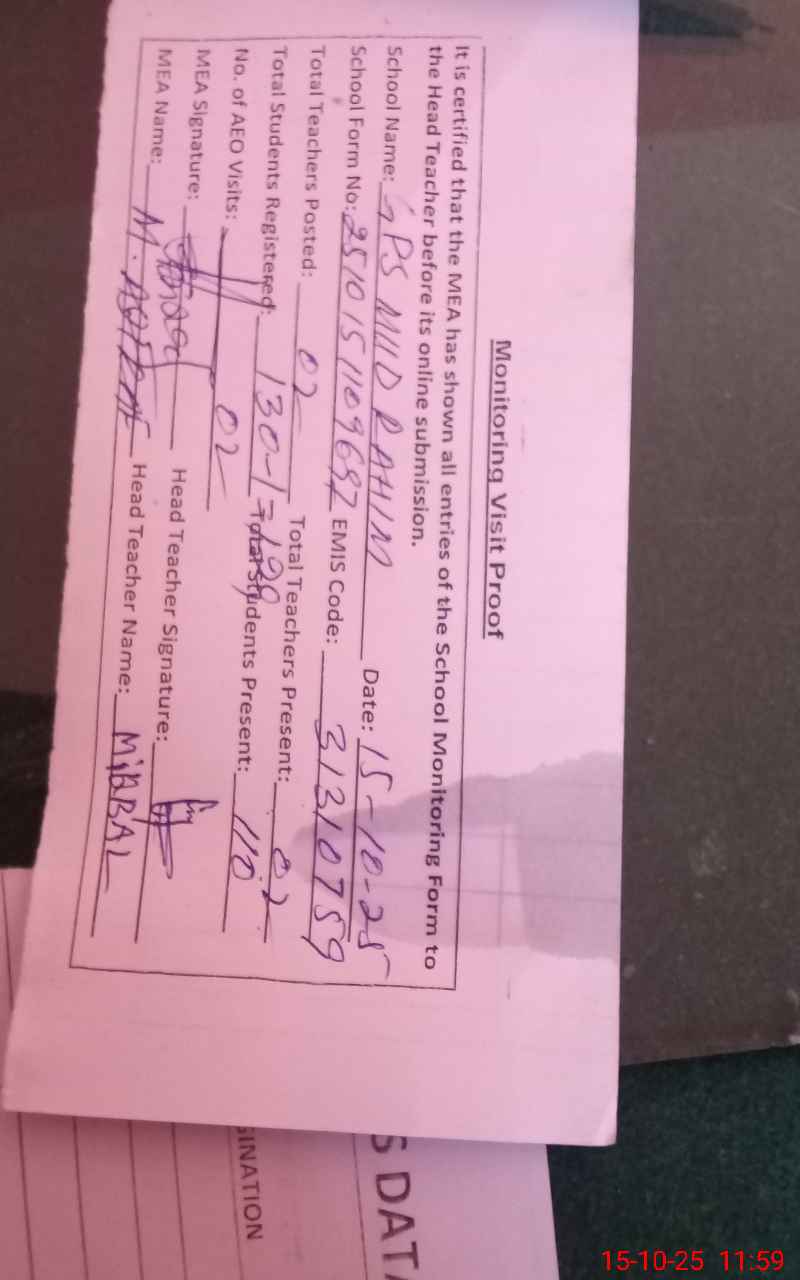 Monitoring Visit Proof
It is certified that the MEA has shown all entries of the School Monitoring Form to
the Head Teacher before its online submission.
School Name: GPS MUD RAHIM Date: 15-10-25
School Form No: EMIS Code: 31310759
Total Teachers Posted: 02 Total Teachers Present: 02
Total Students Registered: 130-1= Total Students Present: 110
No. of AEO Visits: 02
MEA Signature: Head Teacher Signature:
MEA Name: M. Head Teacher Name:
S DATA
GINATION
15-10-25 11:59